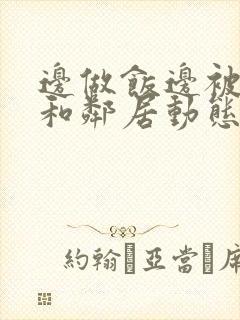 邊做飯邊被
和鄰居動態
約翰·亞當·庫